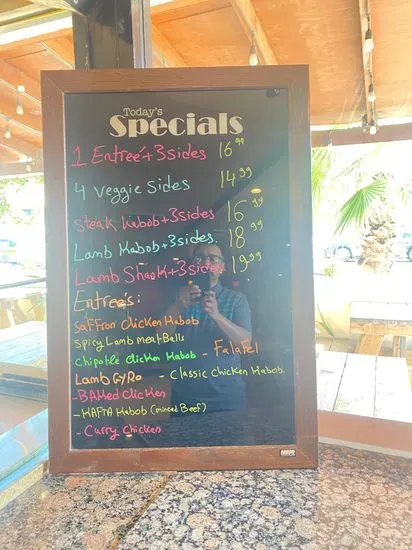 Today's
Specials
1 Entreé+3sides 16 99
4 Veggie Sides 14 99
Steak Kabob+3sides 16 99
Lamb Kabob+3sides. 18 99
Lamb Shank+3sides 19.99
Entreés:
Saffron Chicken Kabob
Spicy Lamb meatBalls
Chipotle Chicken Kabob - Falafel
Lamb Gyro - Classic Chicken Kabob
-Baked Chicken
-Kafta Kabob (minced Beef)
-Curry Chicken